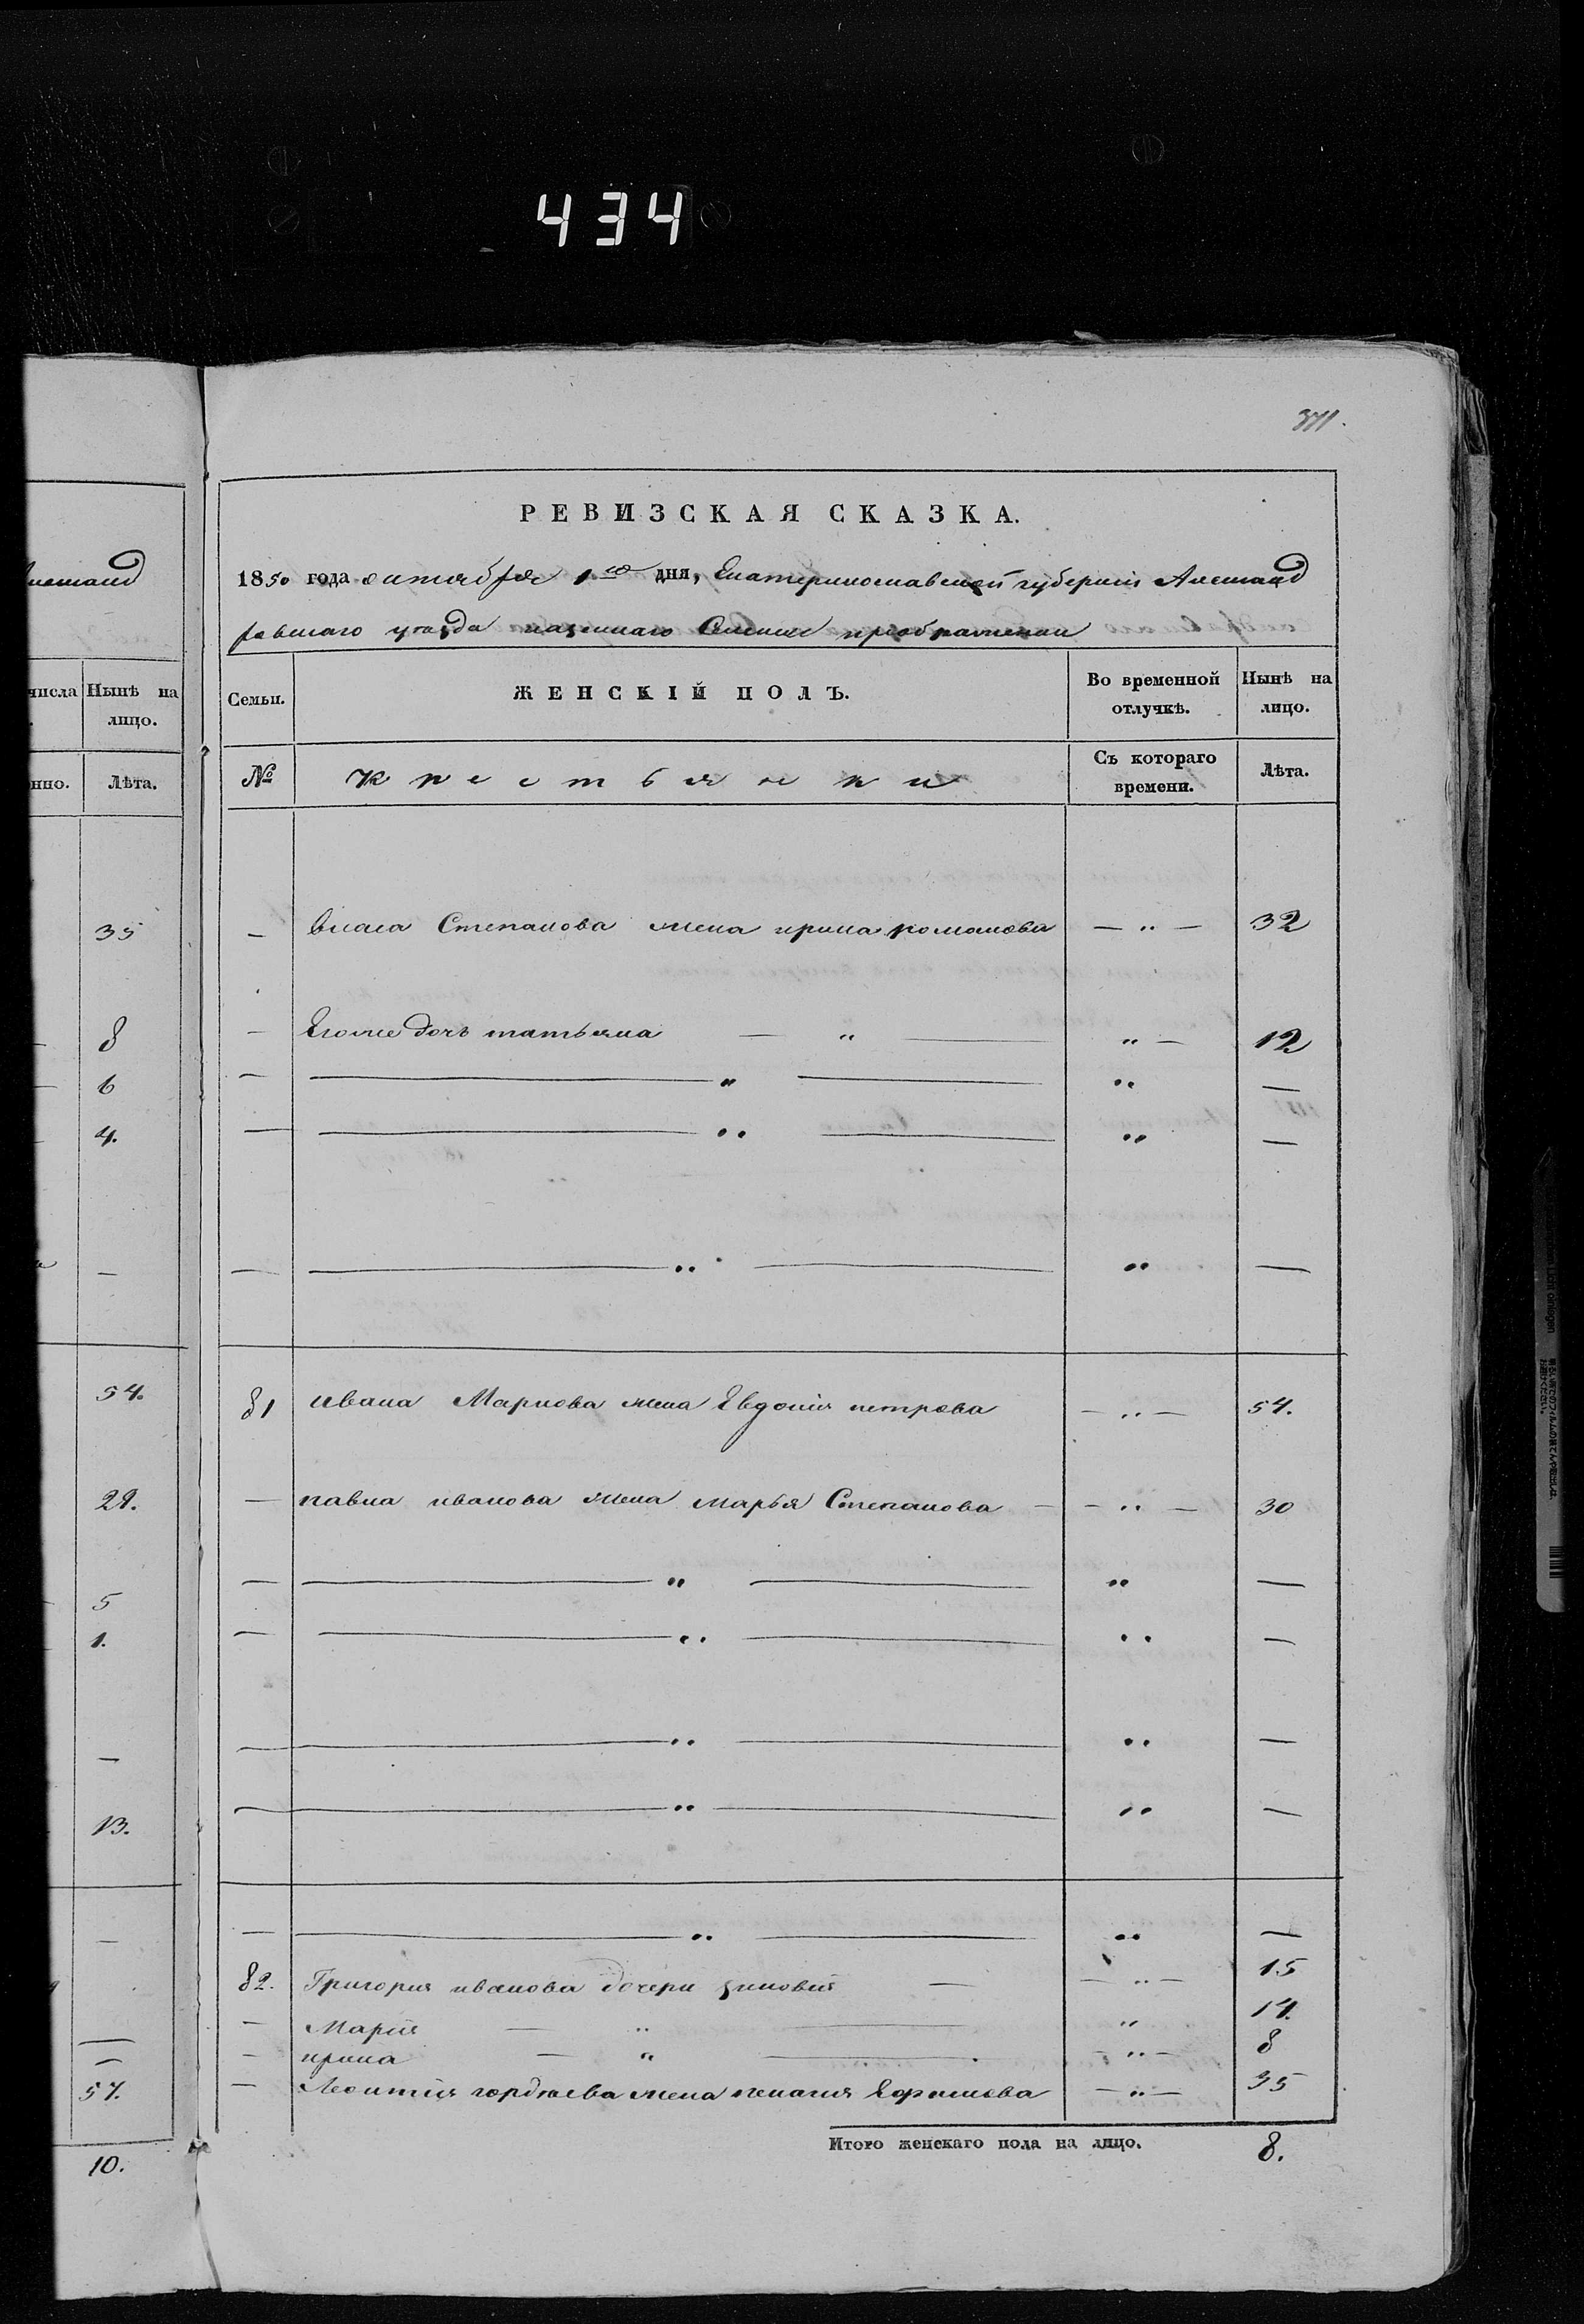 434
371.
РЕВИЗСКАЯ СКАЗКА.
1850 года октября 1го дня, Екатеринославской губернии Александ
ровскаго уезда казеннаго Селения преображенки
Семьи.
ЖЕНСКІЙ ПОЛЪ.
Во временной отлучкѣ.
Нынѣ на лицо.
№
Крестьянки
Съ котораго времени.
Лѣта.
— Власа Степанова жена ирина романова — „ — 32
— Егоже дочь татьяна — „ — „ — 12
— — „ — „ —
— — „ — „ —
— — „ — „ —
81 ивана Маркова жена Евдокия петрова — „ — 54.
— павла иванова жена марья Степанова — — „ — 30
— — „ — „ —
— — „ — „ —
— — „ — „ —
— — „ — „ —
— — „ — „ —
82. Григория иванова дочери зиновия — — „ — 15
— Мария — „ — „ 14.
— ирина — „ — — „ — 8
— Леонтия гордеева жена пелагия Ефимова — „ — 35
Итого женскаго пола на лицо. 8.
числа
Нынѣ на
лицо.
нно.
Лѣта.
35
8
6
4.
—
54.
29.
5
1.
—
13.
—
—
57.
10.